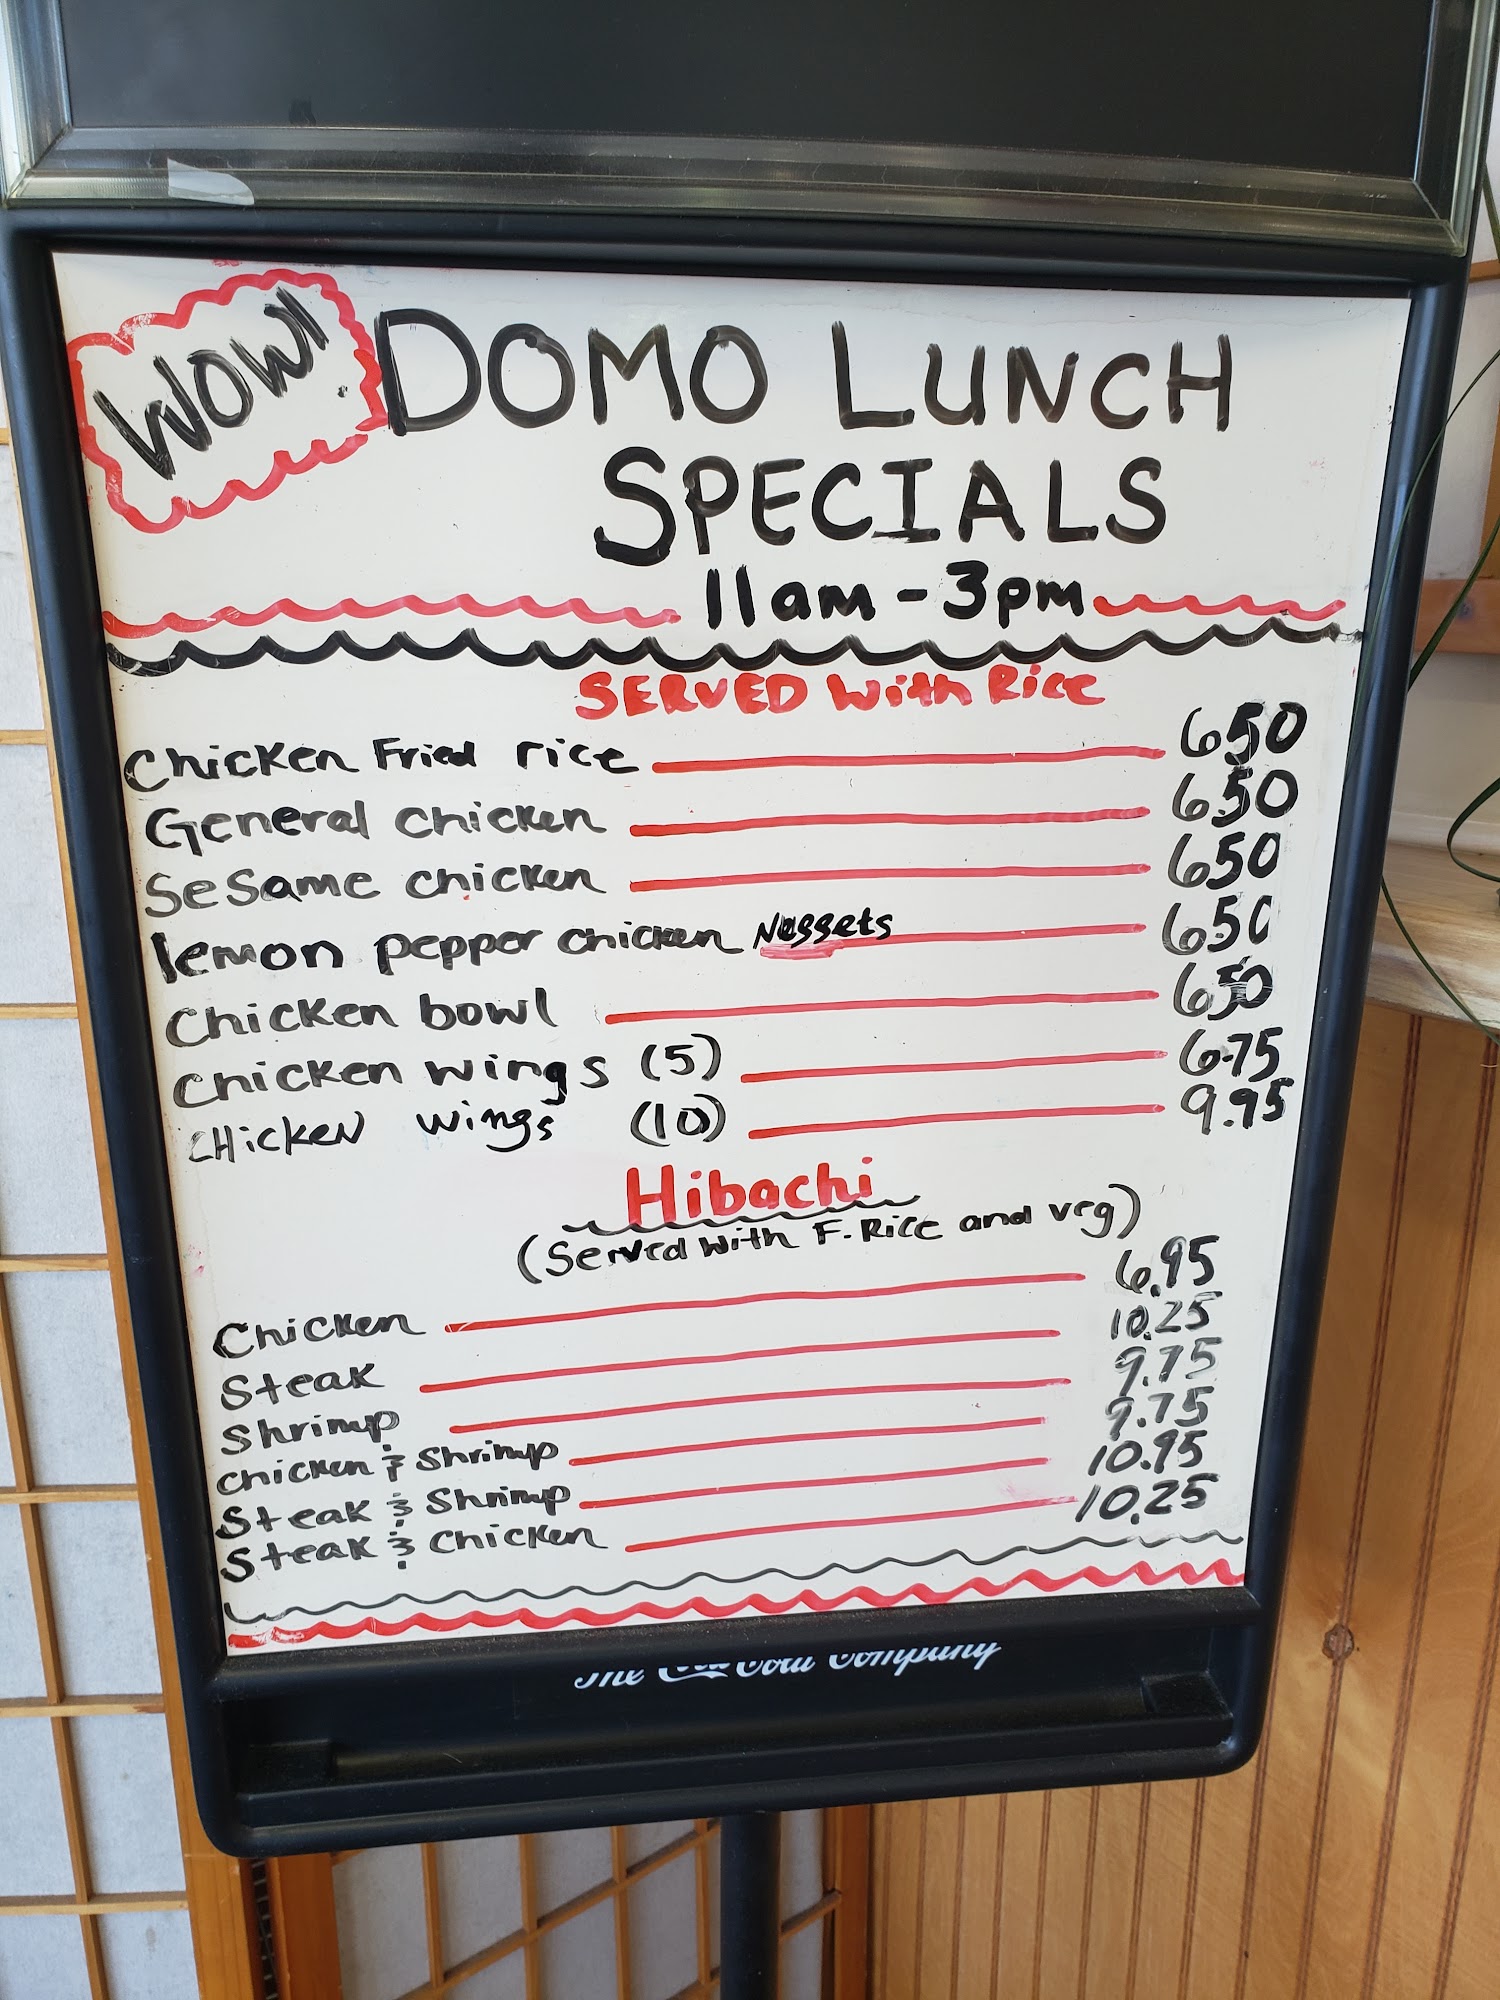 WOW!
DOMO LUNCH
SPECIALS
11am-3pm
SERVED with Rice
Chicken Fried rice 650
General chicken 650
Sesame chicken 650
lemon pepper chicken Nuggets 650
Chicken bowl 650
Chicken wings (5) 6.75
CHicken wings (10) 9.95
Hibachi
(Served with F. Rice and veg)
Chicken 6.95
Steak 10.25
Shrimp 9.75
chicken & Shrimp 9.75
Steak & Shrimp 10.95
Steak & Chicken 10.25
The Coca-Cola Company